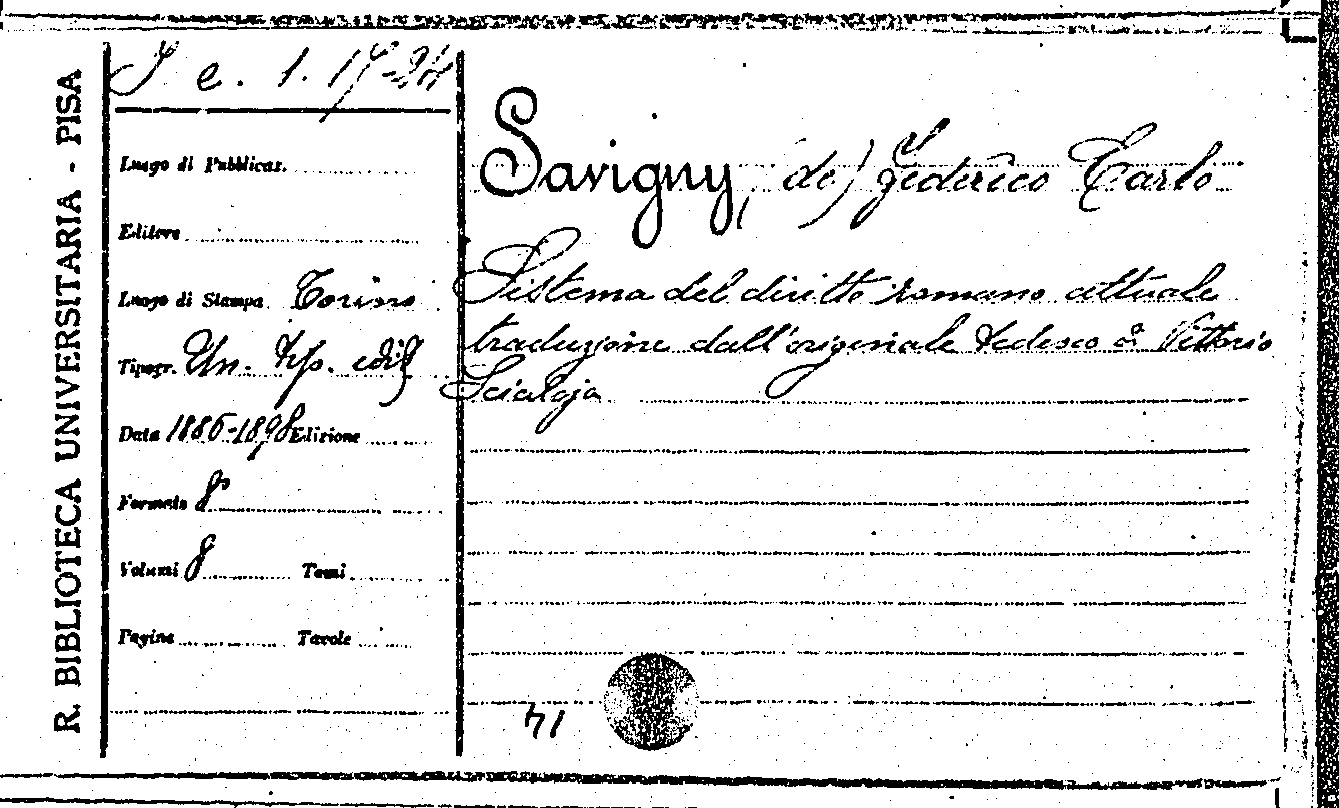 R. BIBLIOTECA UNIVERSITARIA - PISA
I e. 1. 17-24
Luogo di Pubblicaz.
Editore
Luogo di Stampa Torino
Tipogr. Un. tip. edit
Data 1886-1898 Edizione
Formato 8°
Volumi 8 Tomi
Pagine Tavole
Savigny, (de) Federico Carlo
Sistema del diritto romano attuale
traduzione dall'originale tedesco di Vittorio
Scialoja
41